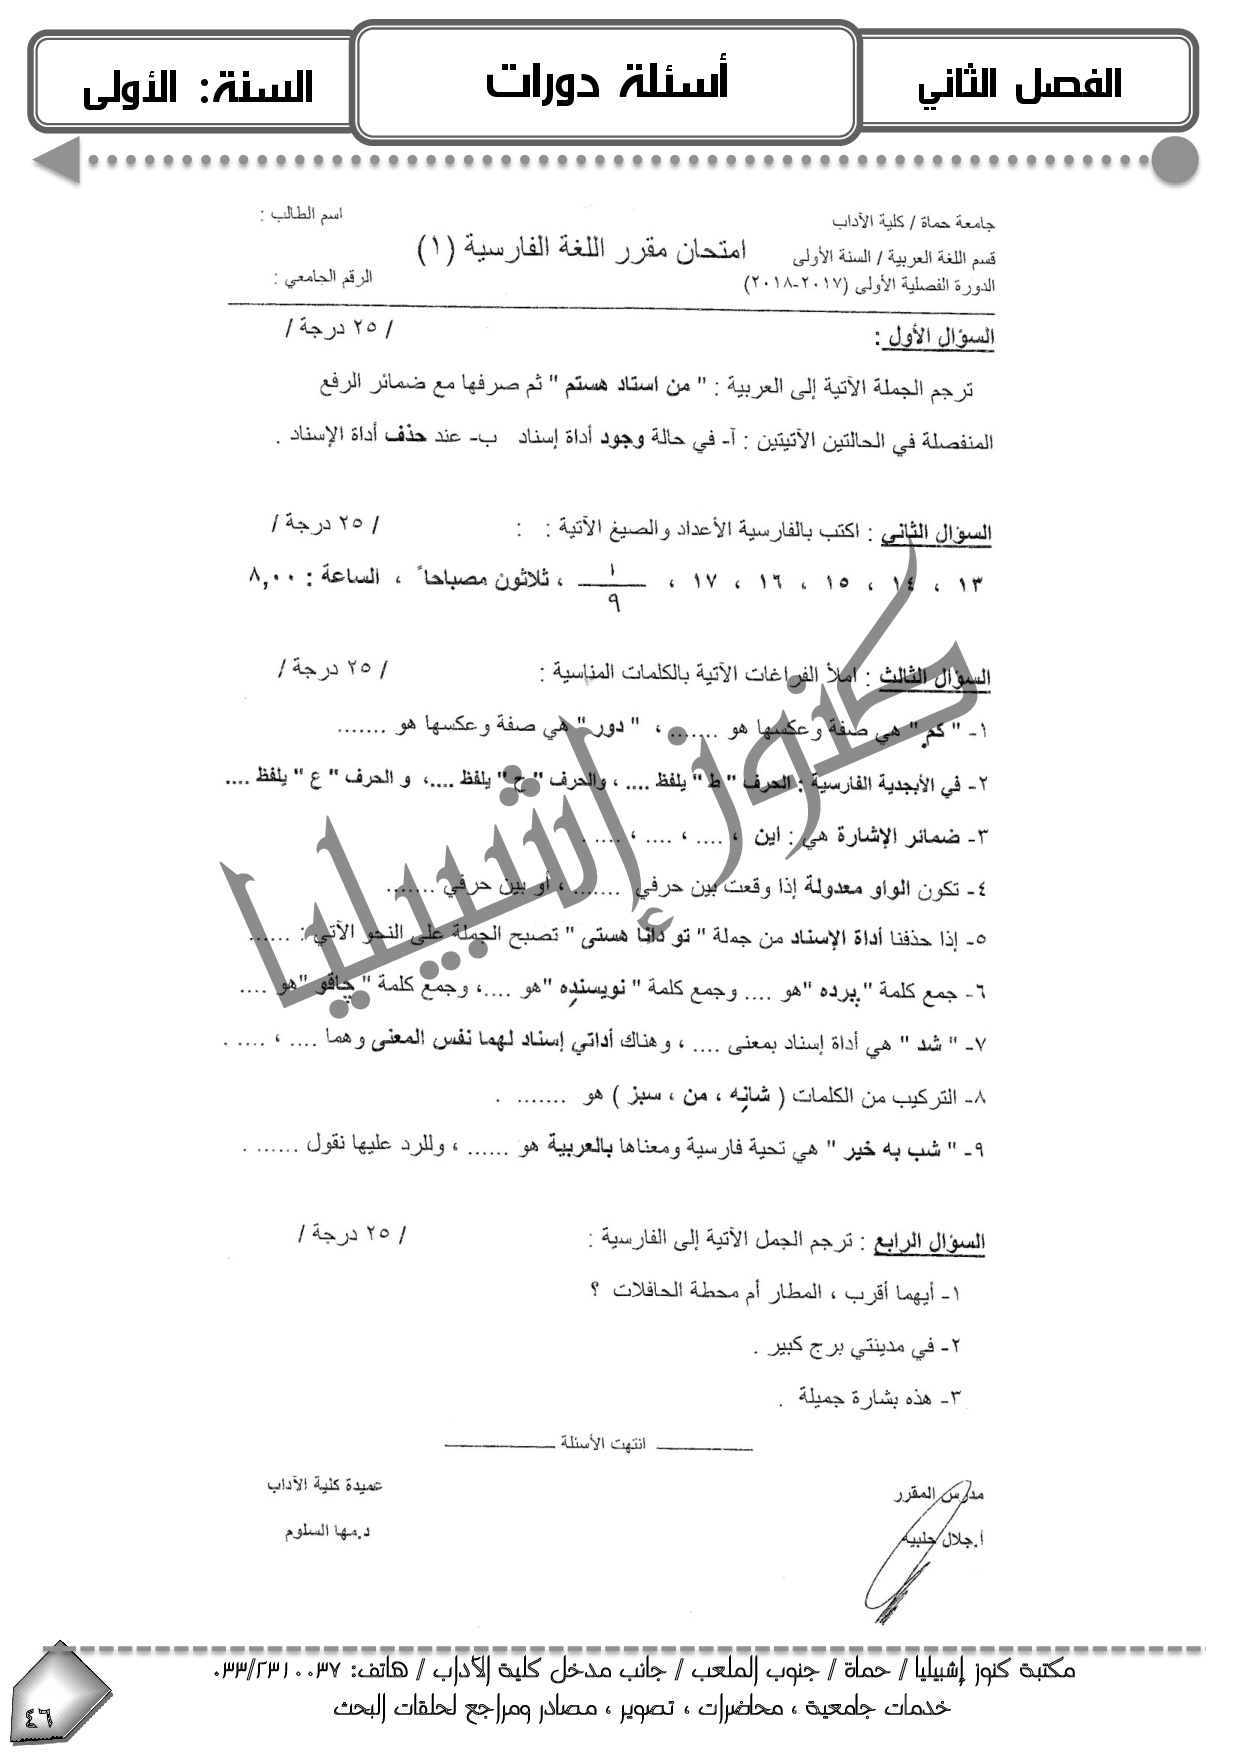 الفصل الثاني
أسئلة دورات
السنة: الأولى
جامعة حماة / كلية الآداب
اسم الطالب :
قسم اللغة العربية / السنة الأولى
امتحان مقرر اللغة الفارسية (١)
الدورة الفصلية الأولى (٢٠١٧-٢٠١٨)
الرقم الجامعي :
السؤال الأول :
/ ٢٥ درجة /
ترجم الجملة الآتية إلى العربية : " من استاد هستم " ثم صرفها مع ضمائر الرفع
المنفصلة في الحالتين الآتيتين : آ- في حالة وجود أداة إسناد ب- عند حذف أداة الإسناد .
السؤال الثاني : اكتب بالفارسية الأعداد والصيغ الآتية : :
/ ٢٥ درجة /
١٣ ، ١٤ ، ١٥ ، ١٦ ، ١٧ ، ١/٩ ، ثلاثون مصباحاً ، الساعة : ٨,٠٠
السؤال الثالث : املأ الفراغات الآتية بالكلمات المناسبة :
/ ٢٥ درجة /
١- " كم " هي صفة وعكسها هو ....... ، " دور " هي صفة وعكسها هو .......
٢- في الأبجدية الفارسية : الحرف " ط " يلفظ .... ، والحرف " ح " يلفظ ....، و الحرف " ع " يلفظ ....
٣- ضمائر الإشارة هي : اين ، .... ، .... ، .... .
٤- تكون الواو معدولة إذا وقعت بين حرفي ....... ، أو بين حرفي .......
٥- إذا حذفنا أداة الإسناد من جملة " تو دانا هستى " تصبح الجملة على النحو الآتي : ......
٦- جمع كلمة " برده "هو .... وجمع كلمة " نويسنده "هو ....، وجمع كلمة " چاقو "هو ....
٧- " شد " هي أداة إسناد بمعنى .... ، وهناك أداتي إسناد لهما نفس المعنى وهما .... ، .... .
٨- التركيب من الكلمات ( شانه ، من ، سبز ) هو ....... .
٩- " شب به خير " هي تحية فارسية ومعناها بالعربية هو ...... ، وللرد عليها نقول ...... .
كنوز إشبيليا
السؤال الرابع : ترجم الجمل الآتية إلى الفارسية :
/ ٢٥ درجة /
١- أيهما أقرب ، المطار أم محطة الحافلات ؟
٢- في مدينتي برج كبير .
٣- هذه بشارة جميلة .
انتهت الأسئلة
مدرس المقرر
عميدة كلية الآداب
أ.جلال حلبيه
د.مها السلوم
مكتبة كنوز إشبيليا / حماة / جنوب الملعب / جانب مدخل كلية الآداب / هاتف: ٠٣٣/٢٣١٠٠٣٧
خدمات جامعية ، محاضرات ، تصوير ، مصادر ومراجع لحلقات البحث
٤٦